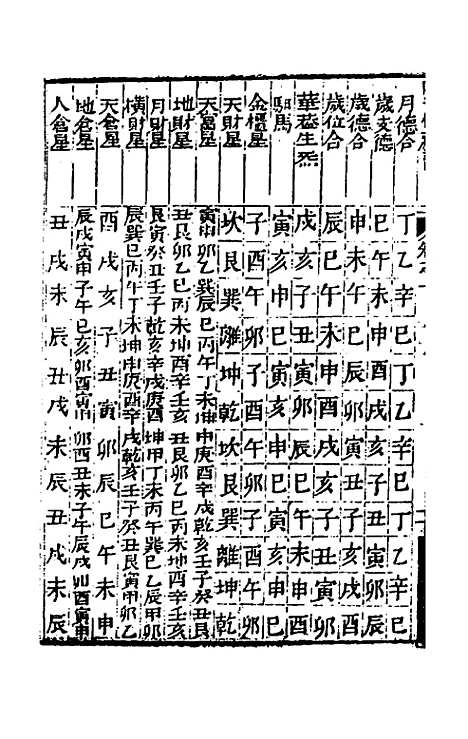 月德合 丁 乙 辛 巳 丁 乙 辛 巳 丁 乙 辛 巳
歲支德 巳 午 未 申 酉 戌 亥 子 丑 寅 卯 辰
歲德合 申 未 午 巳 辰 卯 寅 丑 子 亥 戌 酉
歲位合 辰 巳 午 未 申 酉 戌 亥 子 丑 寅 卯
華蓋生炁 戌 亥 子 丑 寅 卯 辰 巳 午 未 申 酉
馹馬 寅 亥 申 巳 寅 亥 申 巳 寅 亥 申 巳
金櫃星 子 酉 午 卯 子 酉 午 卯 子 酉 午 卯
天財星 坎 艮 巽 離 坤 乾 坎 艮 巽 離 坤 乾
天富星 寅甲 卯乙 巽辰 巳丙 午丁 未坤 申庚 酉辛 戌乾 亥壬 子癸 丑艮
地財星 丑艮 卯乙 巳丙 未坤 酉辛 亥壬 丑艮 卯乙 巳丙 未坤 酉辛 亥壬
月財星 艮寅 癸丑 壬子 乾亥 辛戌 庚酉 坤申 丁未 丙午 巽巳 乙辰 甲卯
橫財星 辰巽 巳丙 午丁 未坤 申庚 酉辛 戌乾 亥壬 子癸 丑艮 寅甲 卯乙
天倉星 酉 戌 亥 子 丑 寅 卯 辰 巳 午 未 申
地倉星 辰戌 寅申 子午 巳亥 卯酉 寅申 卯酉 丑未 子午 辰戌 卯酉 寅申
人倉星 丑 戌 未 辰 丑 戌 未 辰 丑 戌 未 辰